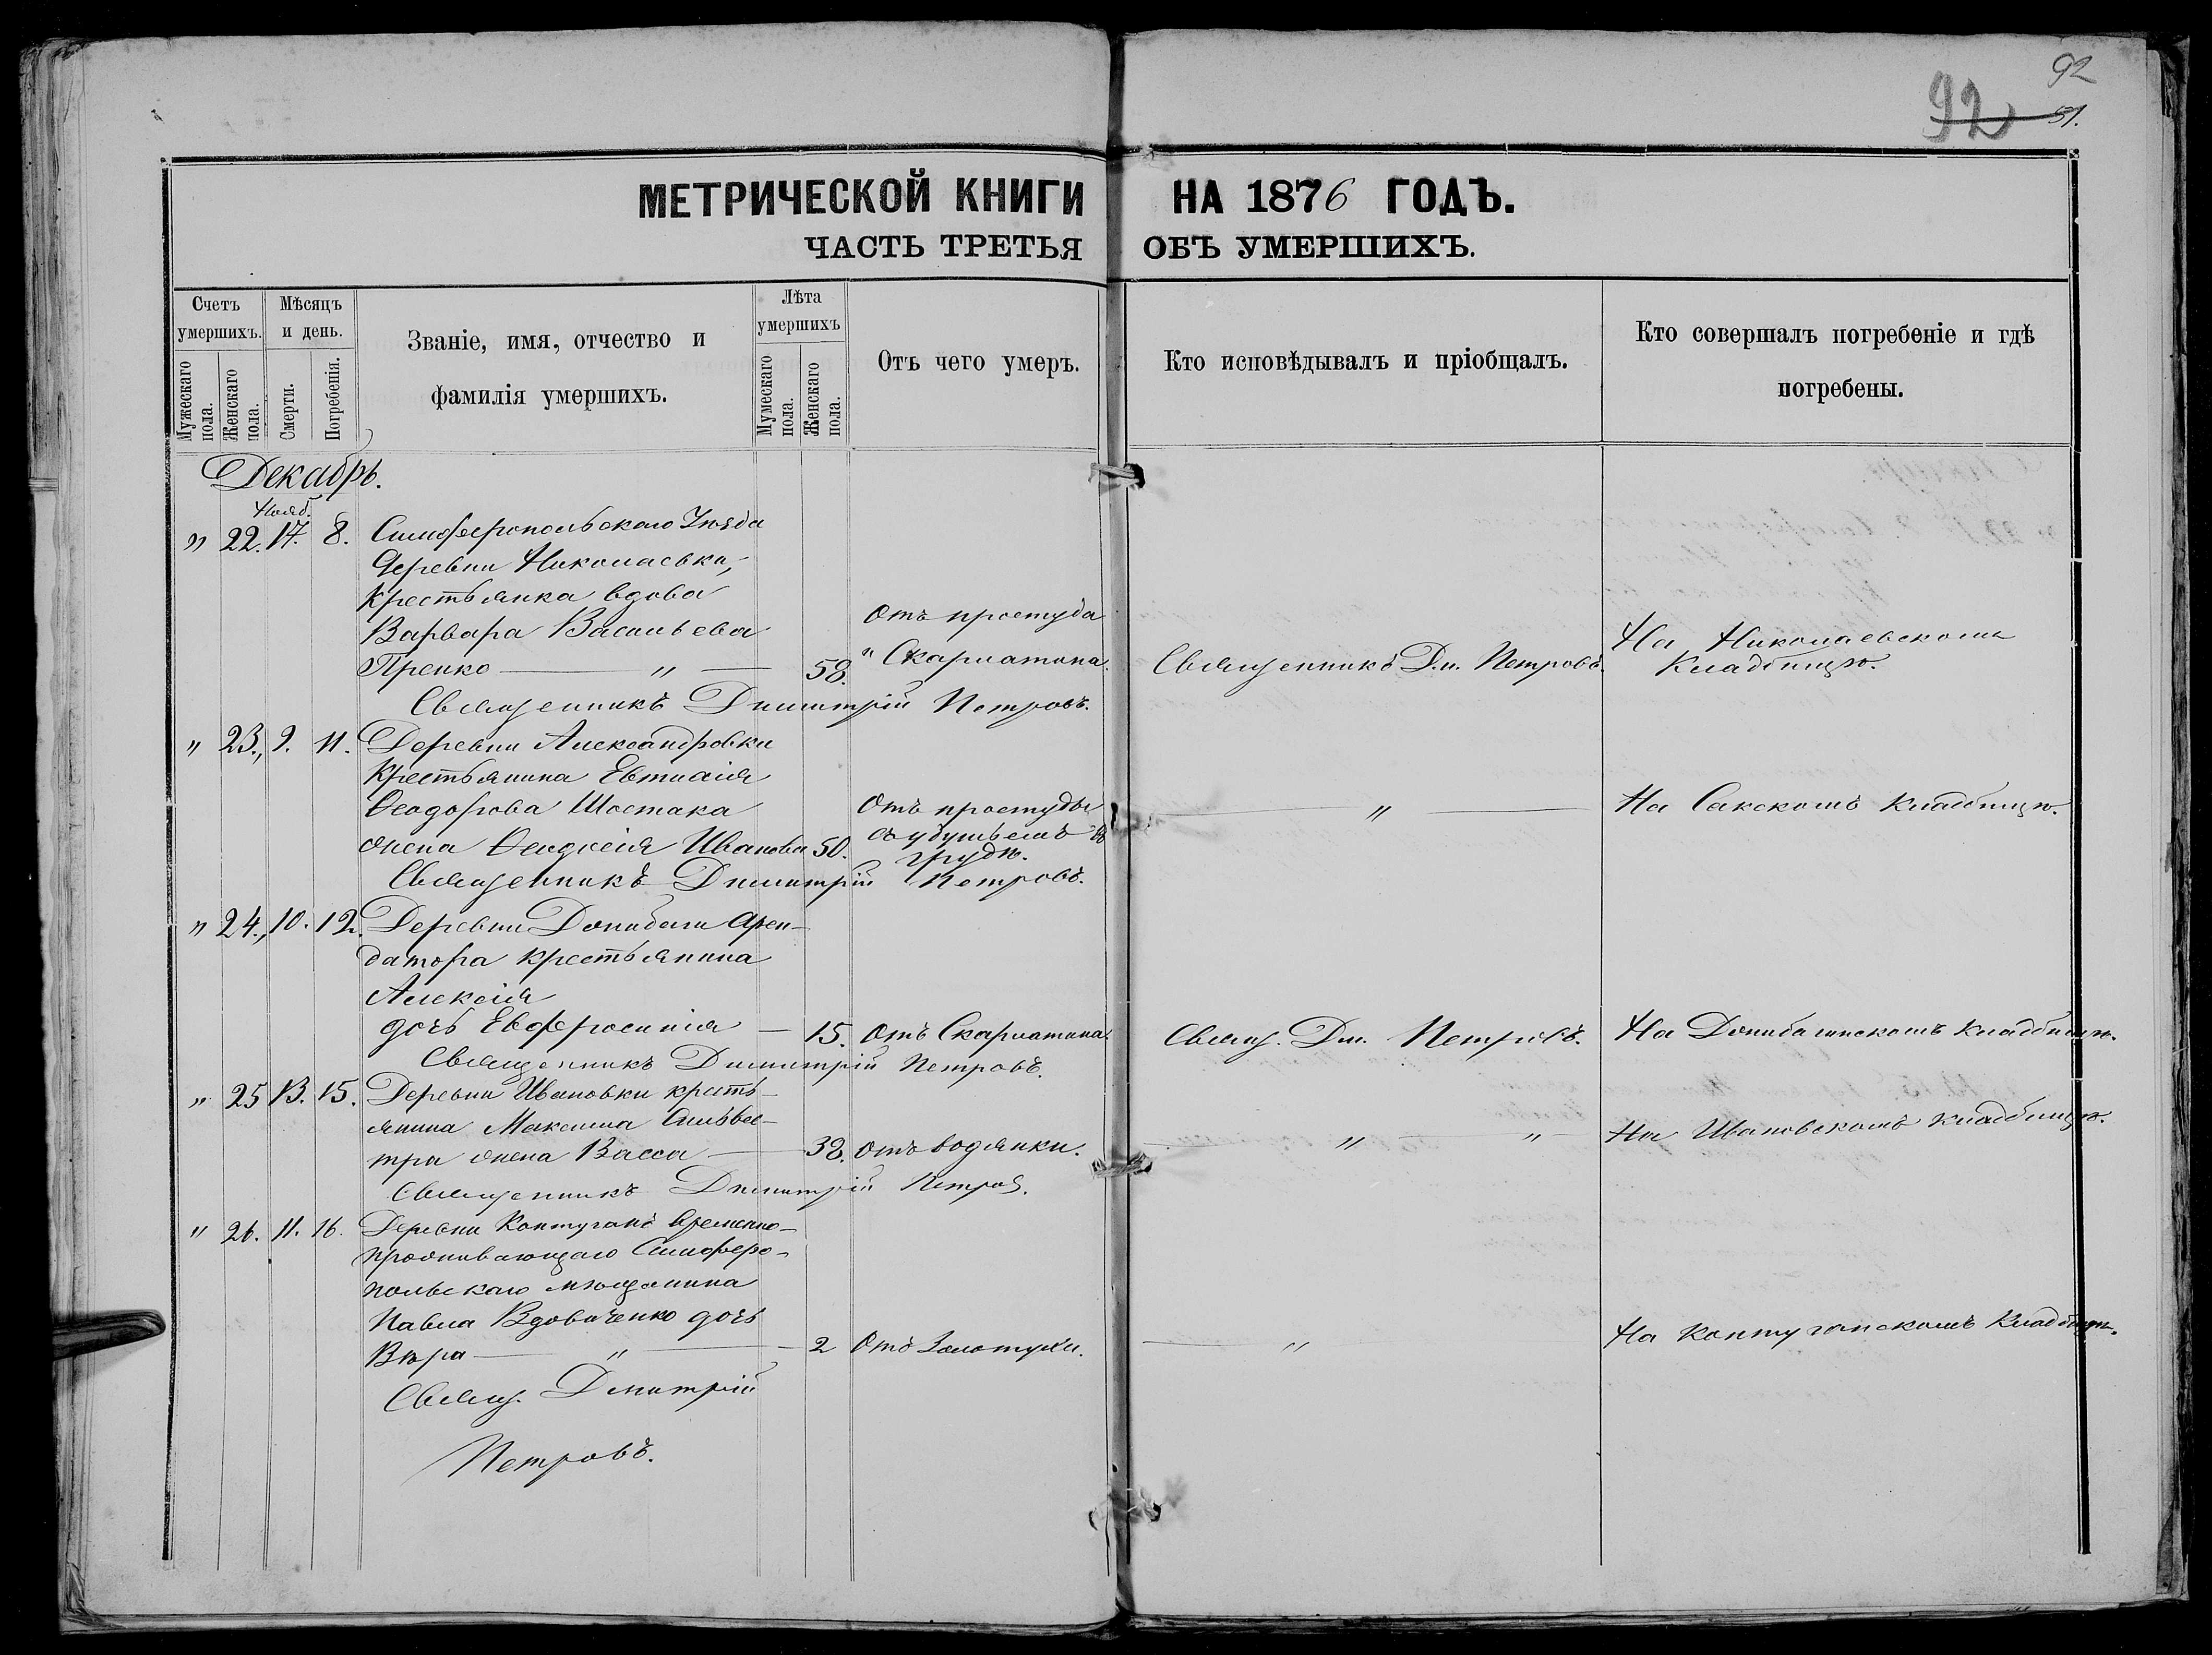 92
92 51.
МЕТРИЧЕСКОЙ КНИГИ НА 1876 ГОДЪ.
ЧАСТЬ ТРЕТЬЯ ОБЪ УМЕРШИХЪ.
Счетъ умершихъ.
Мужескаго пола.
Женскаго пола.
Мѣсяцъ и день.
Смерти.
Погребенія.
Званіе, имя, отчество и
фамилія умершихъ.
Лѣта умершихъ
Мужескаго пола.
Женскаго пола.
Отъ чего умеръ.
Кто исповѣдывалъ и пріобщалъ.
Кто совершалъ погребеніе и гдѣ
погребены.
Декабрь.
Нояб.
" 22. 17. 8. Симферопольскаго Уѣзда
Деревни Николаевки,
Крестьянка вдова
Варвара Васильева Отъ простуда
Пренко " 58. " Скарлатина. Священникъ Дм. Петровъ. На Николаевскомъ
Кладбищѣ.
Священникъ Димитрій Петровъ.
" 23., 9. 11. Деревни Александровки
Крестьянина Евтихія
Ѳеодорова Шостака Отъ простуды " На Сакскомъ Кладбищѣ.
жена Ѳеодосія Иванова 50. съ удушьемъ въ
грудѣ.
Священникъ Димитрій Петровъ.
" 24., 10. 12. Деревни Донибаги Арен-
датора крестьянина
Алексія
дочь Евфросинія — 15. Отъ Скарлатина. Свящ. Дм. Петровъ. На Донибагинскомъ Кладбищѣ.
Священникъ Димитрій Петровъ.
" 25 13. 15. Деревни Ивановки кресть-
янина Максима Сильвес-
тра жена Васса — 38. Отъ водянки. " " На Ивановскомъ Кладбищѣ.
Священникъ Димитрій Петров.
" 26. 11. 16. Деревни Контуганъ временно-
проживающаго Симферо-
польскаго мѣщанина
Павла Вдовиченко дочь
Вѣра " 2 Отъ Золотухи. " На Контуганскомъ Кладбищѣ.
Свящ. Дмитрій
Петровъ.